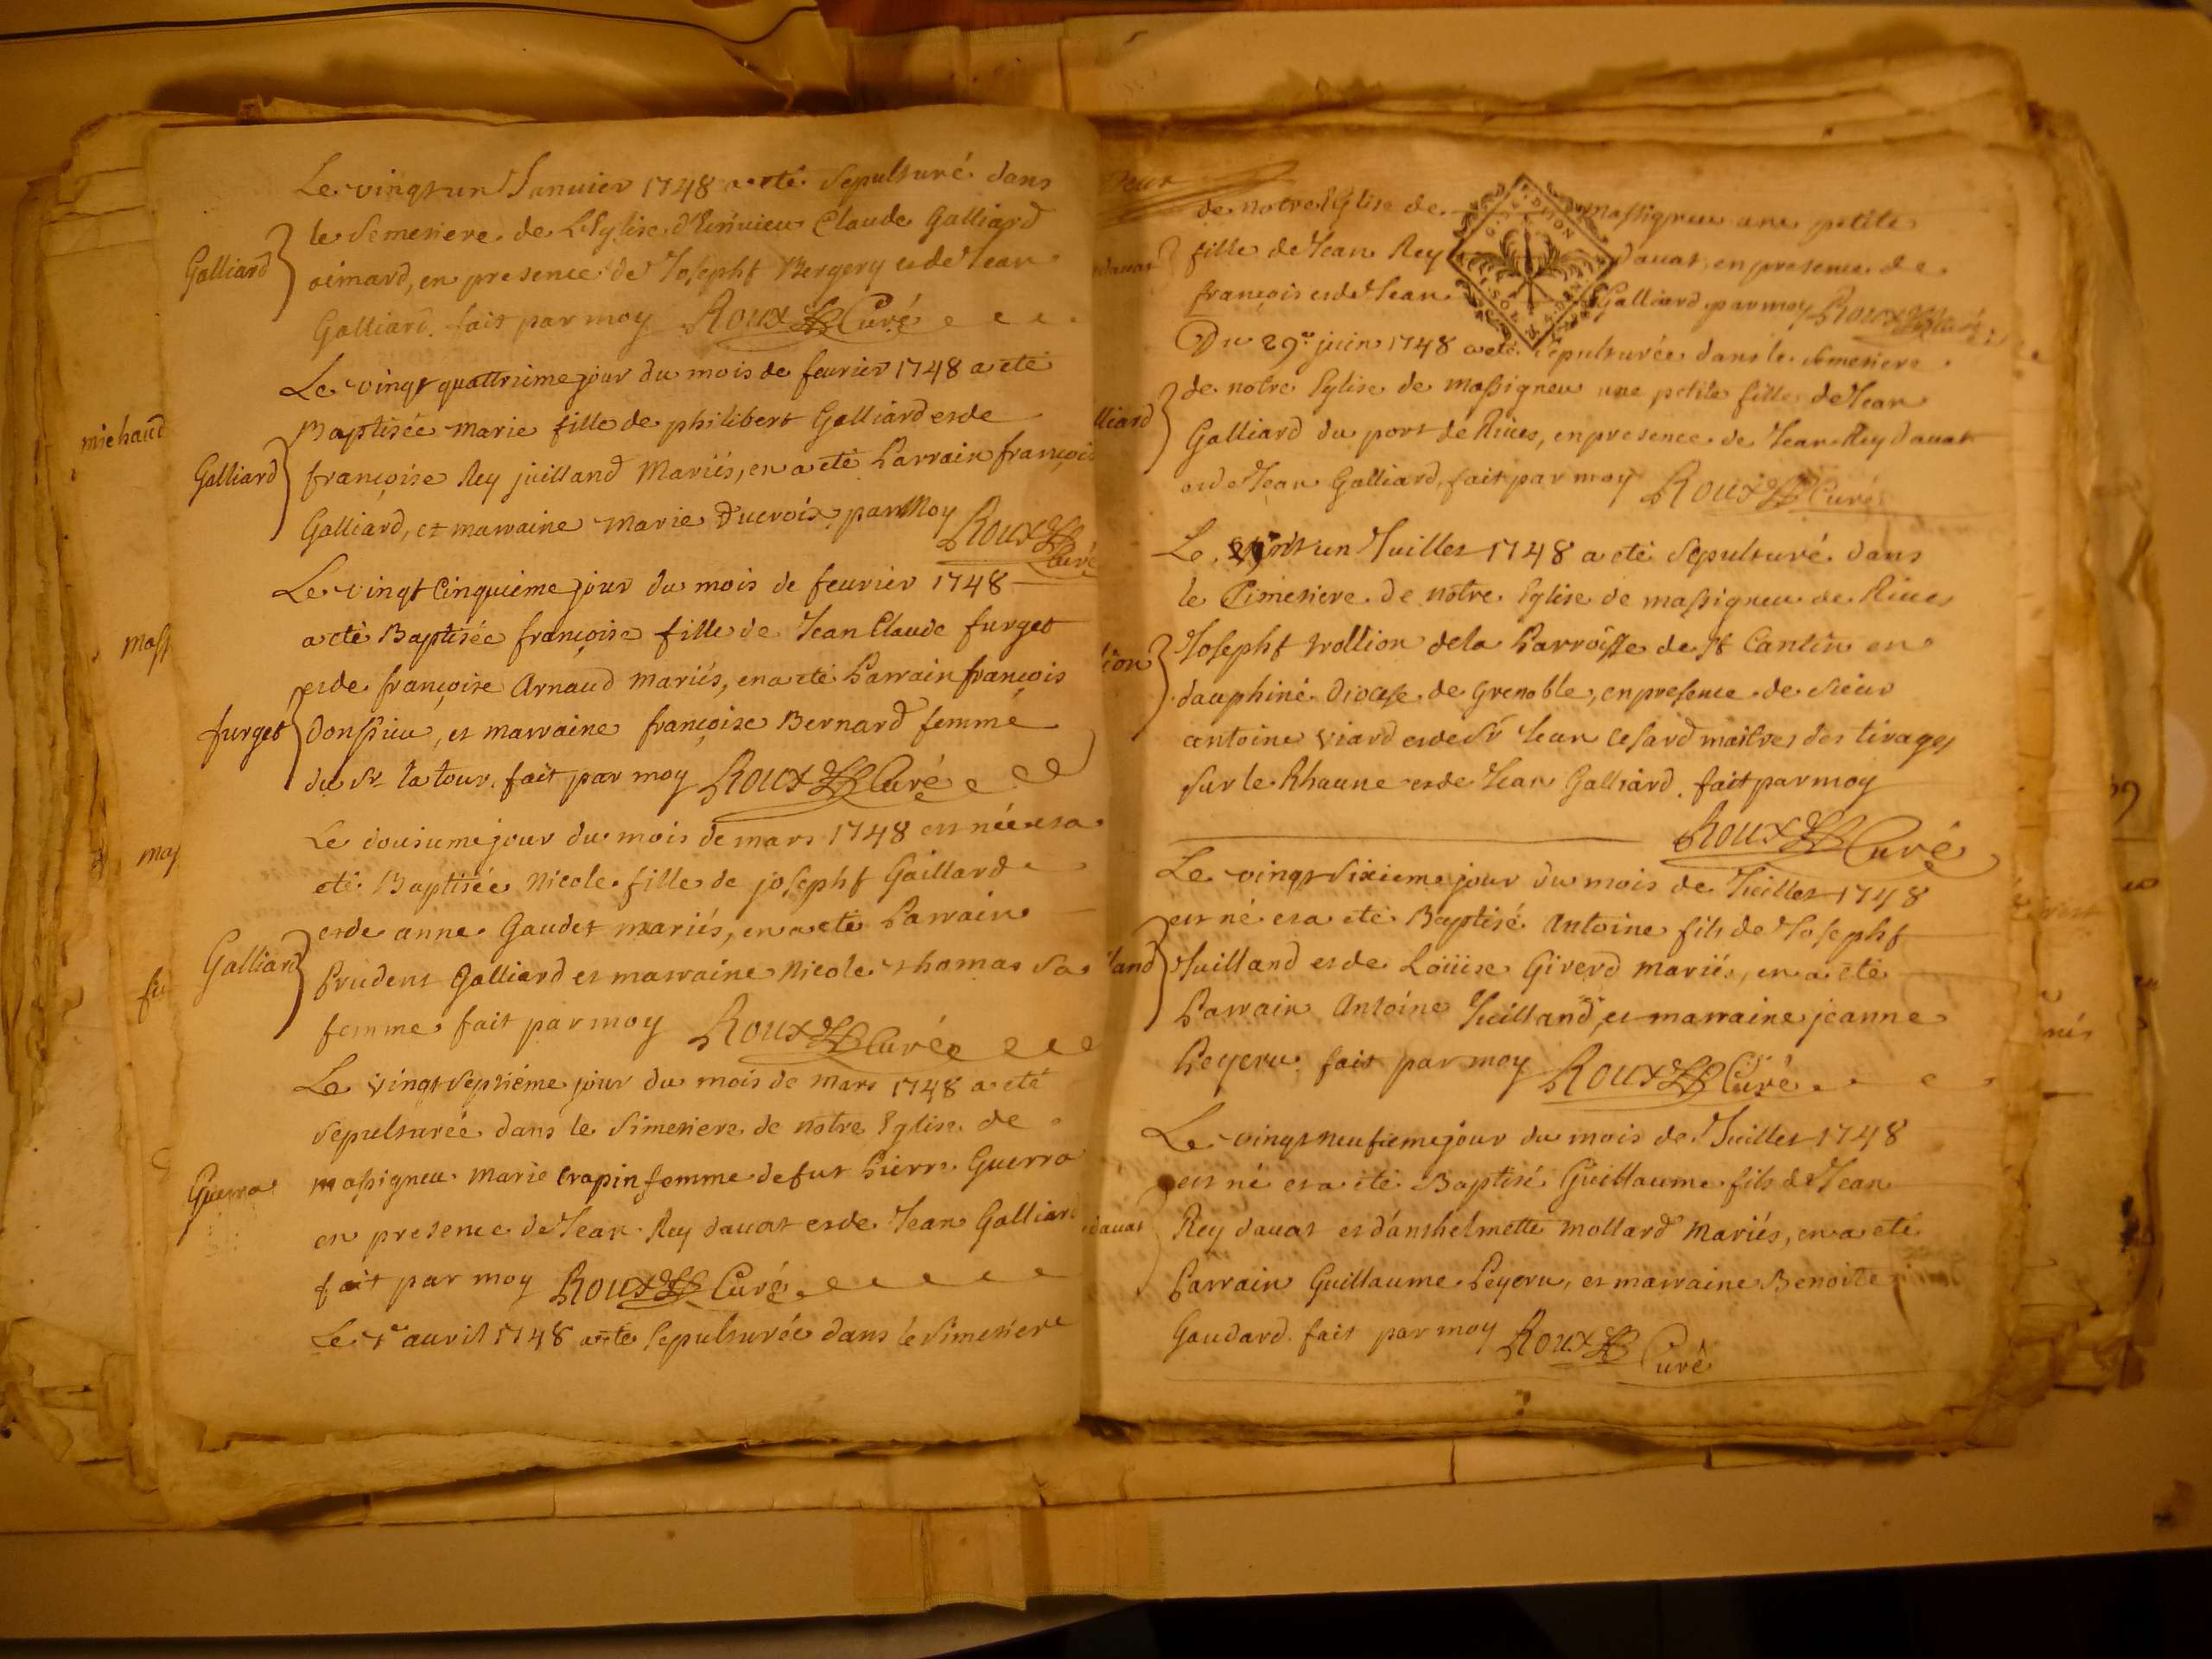 Le vingt un Janvier 1748 a eté Sepulturé dans
le Semetiere de L'Eglise d'Ennuieu Claude Galliard
Galliard
oimard, en presence de Josepht Bergery et de Jean
Galliard. fait par moy Roux Curé
Le vingt quattrieme jour du mois de feurier 1748 a eté
Baptisée Marie fille de philibert Galliard et de
Galliard
françoise Rey juilland Mariés, en a eté Parrain françois
Galliard, et marraine Marie Ducroix, par Moy
Roux
Curé
Le vingt Cinquieme jour du mois de feurier 1748
a eté Baptisée françoise fille de Jean Claude furget
et de françoise Arnaud mariés, en a eté Parrain françois
furget
Donssieu, et marraine françoise Bernard femme
du Sr la tour. fait par moy Roux Curé
Le dousieme jour du mois de mars 1748 est née et a
eté Baptisée Nicole fille de josepht Gaillard
et de anne Gaudet mariés, en a eté Parrain
Galliard
Prudent Galliard et marraine Nicole thomas sa
femme fait par moy Roux Curé
Le vingt septiéme jour du mois de mars 1748 a eté
Sepulturée dans le Simetiere de notre Eglise de
massigneu Marie Crapin femme de fut Pierre Guerra
Guerra
en presence de Jean Rey dauat et de Jean Galliard
fait par moy Roux Curé
Le 1er auril 1748 a eté Sepulturée dans le Simetiere
michaud
mass
mas
fu
de notre Eglise de Massigneu une petite
fille de Jean Rey dauat, en presence de
dauat
françois et de Jean Galliard par moy Roux Curé
Du 29e juin 1748 a eté Sepulturée dans le Semetiere
de notre Eglise de massigneu une petite fille de Jean
lliard
Galliard du port de Riues, en presence de Jean Rey dauat
et de Jean Galliard, fait par moy Roux Curé
Le vint un Juillet 1748 a eté Sepulturé dans
le Cimetiere de notre Eglise de massigneu de Riues
Josepht trollion de la Parroisse de St Cantin en
ion
dauphiné Diocese de Grenoble, en presence de Sieur
antoine Viard et de Sr Jean Cesard maitres des tirages
sur le Rhaune et de Jean Galliard. fait par moy
Roux Curé
Le vingt Sixieme jour du mois de Juillet 1748
est né et a eté Baptisé Antoine fils de Josepht
land
Juilland et de Loüise Girerd mariés, en a eté
Parrain Antoine Juilland, et marraine jeanne
Peyeru. fait par moy Roux Curé
Le vingt neufieme jour du mois de Juillet 1748
est né et a eté Baptisé Guillaume fils de Jean
dauat
Rey dauat et d'anthelmette Mollard Mariés, en a eté
Parrain Guillaume Peyeru, et marraine Benoite
Gaudard. fait par moy Roux Curé
nés